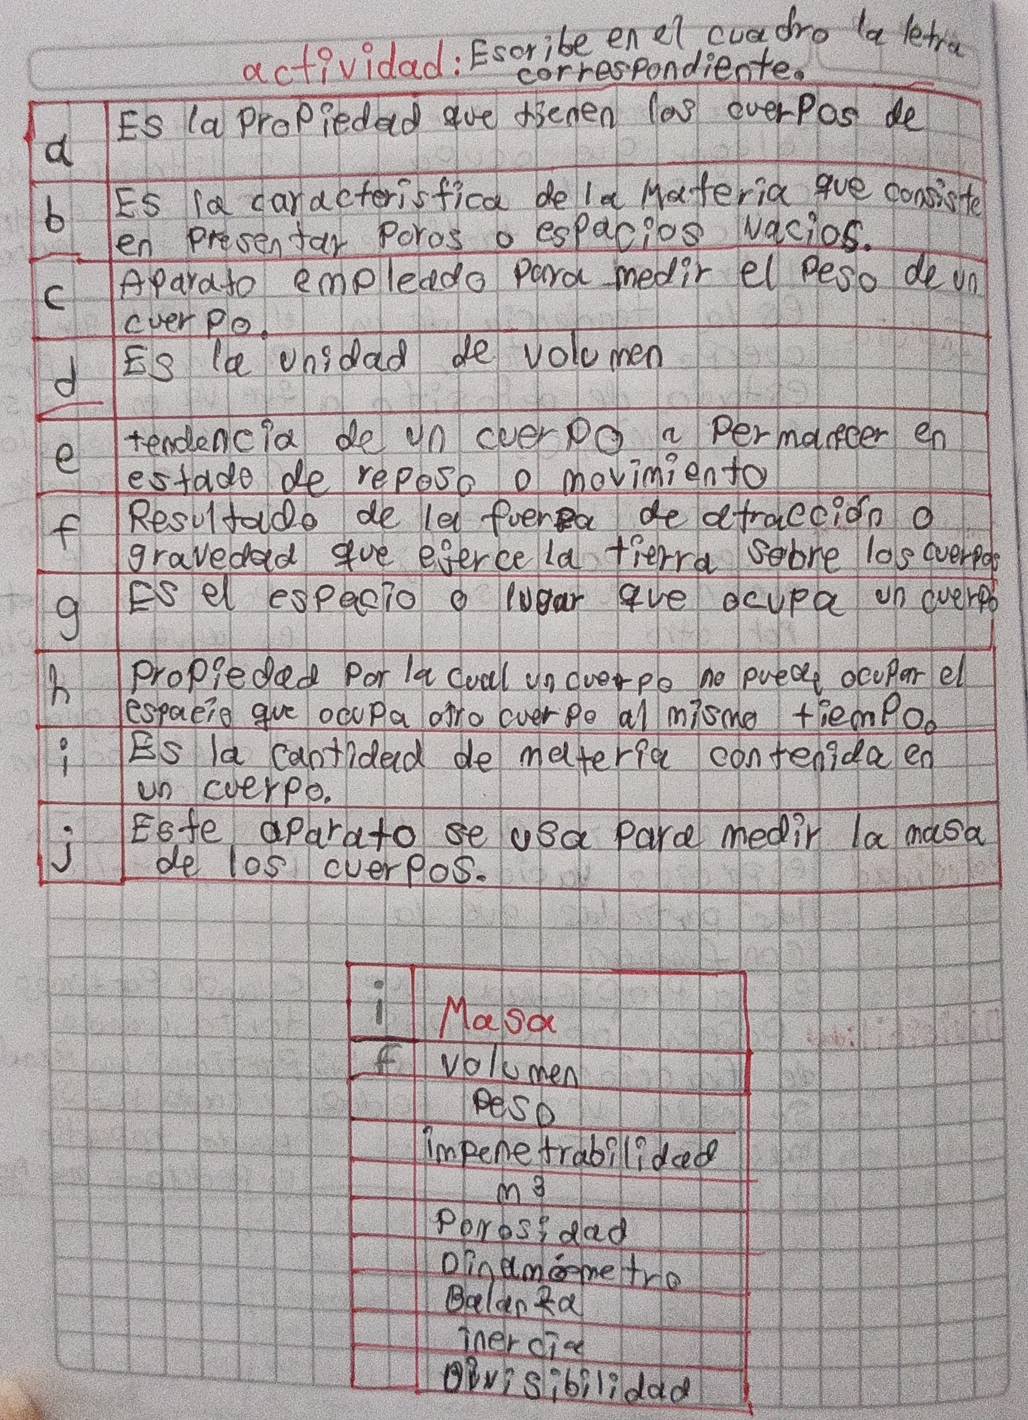 actividad: Escribe en el cuadro la letra
correspondiente.
a Es la Propiedad que tienen los cuerpos de
b Es la caracteristica de la Materia que consiste
en presentar Poros o espacios vacios.
c Aparato empleado para medir el peso de un
cuerpo.
d Es la unidad de volumen
e tendencia de un cuerpo a Permanecer en
estado de reposo o movimiento
f Resultado de la fuerza de atracción o
gravedad que ejerce la tierra sobre los cuerpos
g Es el espacio o lugar que ocupa un cuerpo
h propiedad Por la cual un cuerpo no puede ocupar el
espacio que ocupa otro cuerpo al mismo tiempo.
i Es la cantidad de materia contenida en
un cuerpo.
j Este aparato se usa para medir la masa
de los cuerpos.
i Masa
f volumen
Peso
impenetrabilidad
m3
Porosidad
Dinamómetro
Balanza
inercia
Divisibilidad